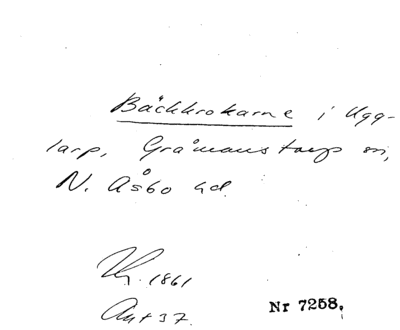 Bäckkrokarne i Ugg-
larp, Gråmanstorp sn,
N. Åsbo hd.
1861
Ant 37.
Nr 7258.